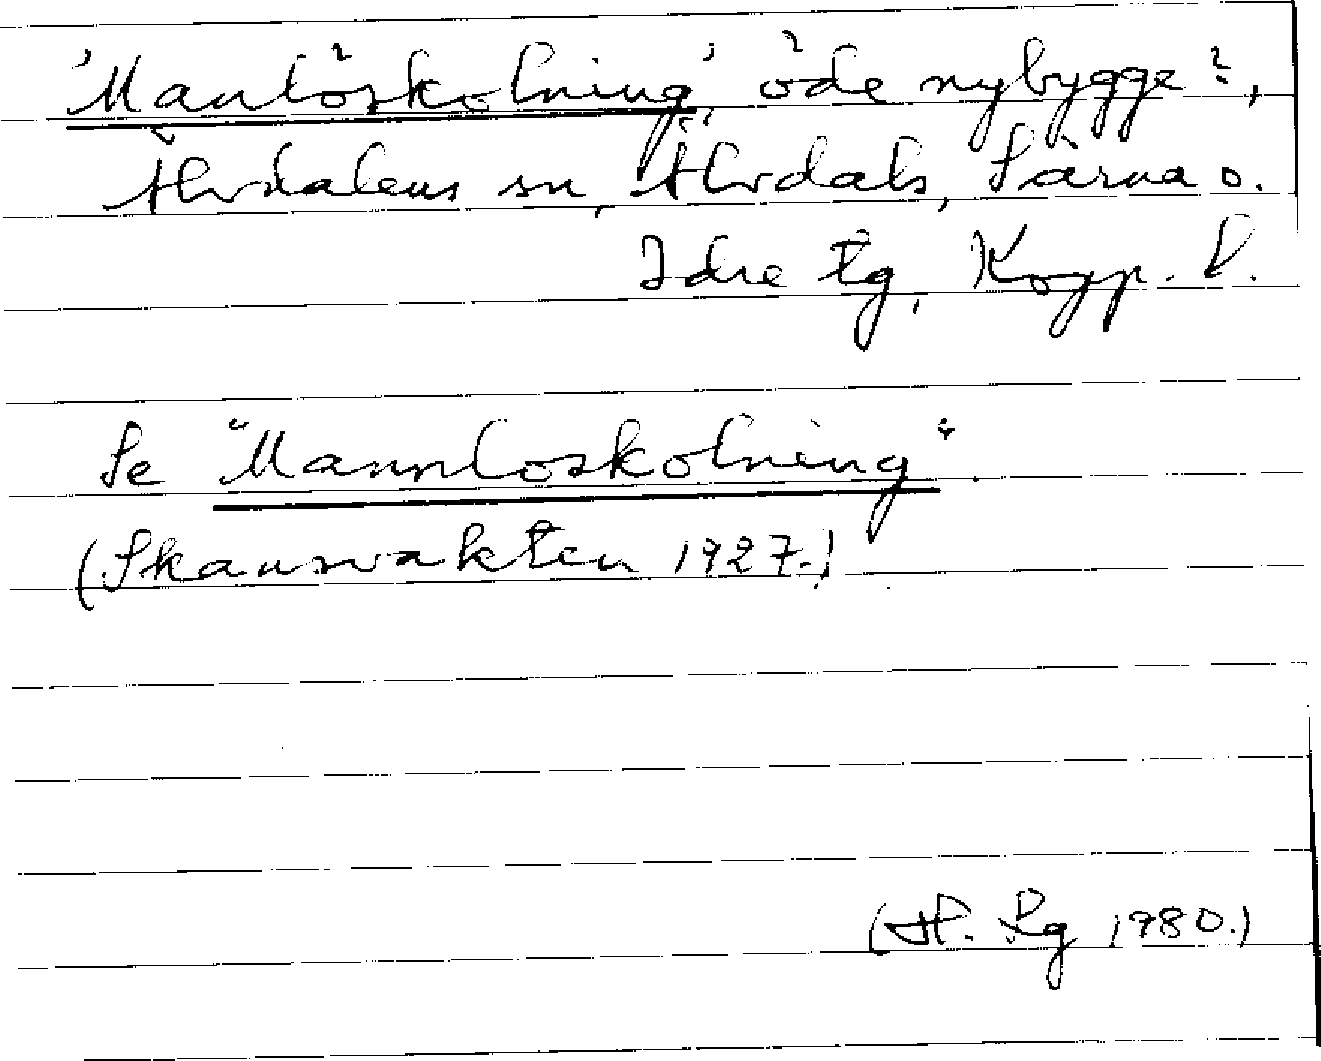 'Manlöskolning', öde nybygge?,
Älvdalens sn, Älvdals, Särna o.
Idre tg, Kopp. l.
Se "Mannloskolning".
(Skansvakten 1927.)
(H. Lg 1980.)